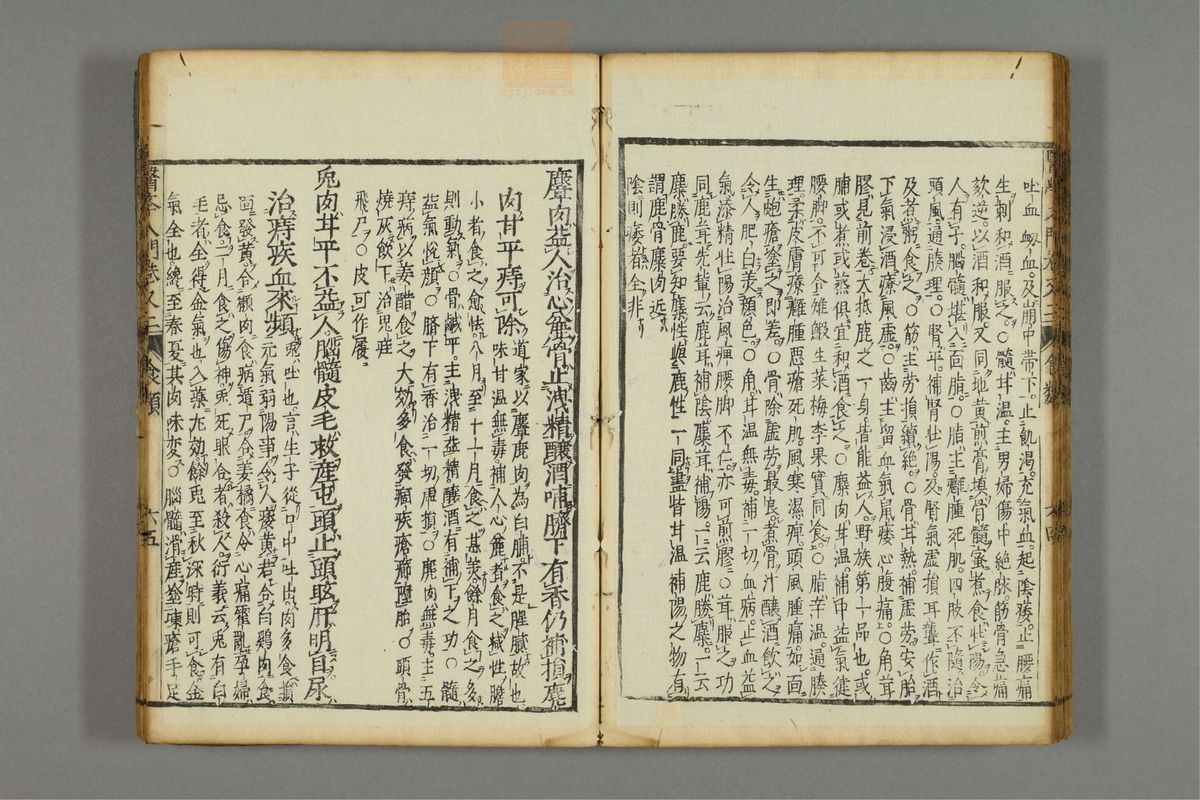 吐血衂血及崩中帶下止飢渴充氣血起陰痿止腰痛
生刺和酒服之○髓甘温主男婦傷中絶脉筋骨急痛
欬逆以酒和服又同地黄煎膏填骨髓蜜煮食壯陽令
人有子○腦髓堪入面脂○脂主癰腫死肌四肢不隨治
頭風通腠理○腎平補腎壯陽及腎氣虚損耳聾作酒
及煮粥食之○筋主勞損續絶○骨甘熱補虚勞安胎
下氣浸酒療風虚○齒主留血氣鼠瘻心腹痛○角茸
膠見前卷大抵鹿之一身皆能益人野族第一品也或
脯或煮或蒸俱宜和酒食之○麋肉甘温補中益氣徤
腰脚不可合雉鰕生菜梅李果實同食○脂辛温通腠
理柔皮膚療癰腫惡瘡死肌風寒濕痺頭風腫痛如面
生皰瘡塗之即差○骨除虚勞最良煮骨汁釀酒飲之
令人肥白美顏色○角甘温無毒補一切血病止血益
氣添精壯陽治風痺腰脚不仁亦可煎膠○茸服之功
同鹿茸先輩云鹿茸補陰麋茸補陽一云鹿勝麋一云
麋勝鹿要知麋性與鹿性一同皆甘温補陽之物有
謂鹿骨麋肉近
陰則痿者全非
麞肉益人治心 止洩精釀酒哺臍下有香仍補損麂
肉甘平痔可除道家以麞鹿肉為白脯不是腥膩故也
味甘温無毒補人心麄者食之械性膽
小者食之愈怯八月至十一月食之甚美餘月食之多
則動氣○骨鹹平主洩精益精釀酒有補下之功○髓
益氣悅顏○臍下有香治一切虚損○麂肉無毒主五
痔病以姜醋食之大効多食發痼疾瘡疥墮胎○頭骨
燒灰飲下治飛尸○皮可作履
兎肉甘平不益人腦髓皮毛救產屯頭止頭眩肝明目屎
治痔疾血來頻兎吐也言生子從口中吐出肉多食損
元氣弱陽事令人痿黄若合白鷄肉食
面發黄合獺肉食病遁尸合姜橘食令心痛霍亂孕婦
忌食二月食之傷神兎死眼合者殺人衍義云兎有白
毛者全得金氣也入藥尤効餘兎至秋深時則可食金
氣全也纔至春夏其肉味変○腦髓滑產塗凍瘡手足